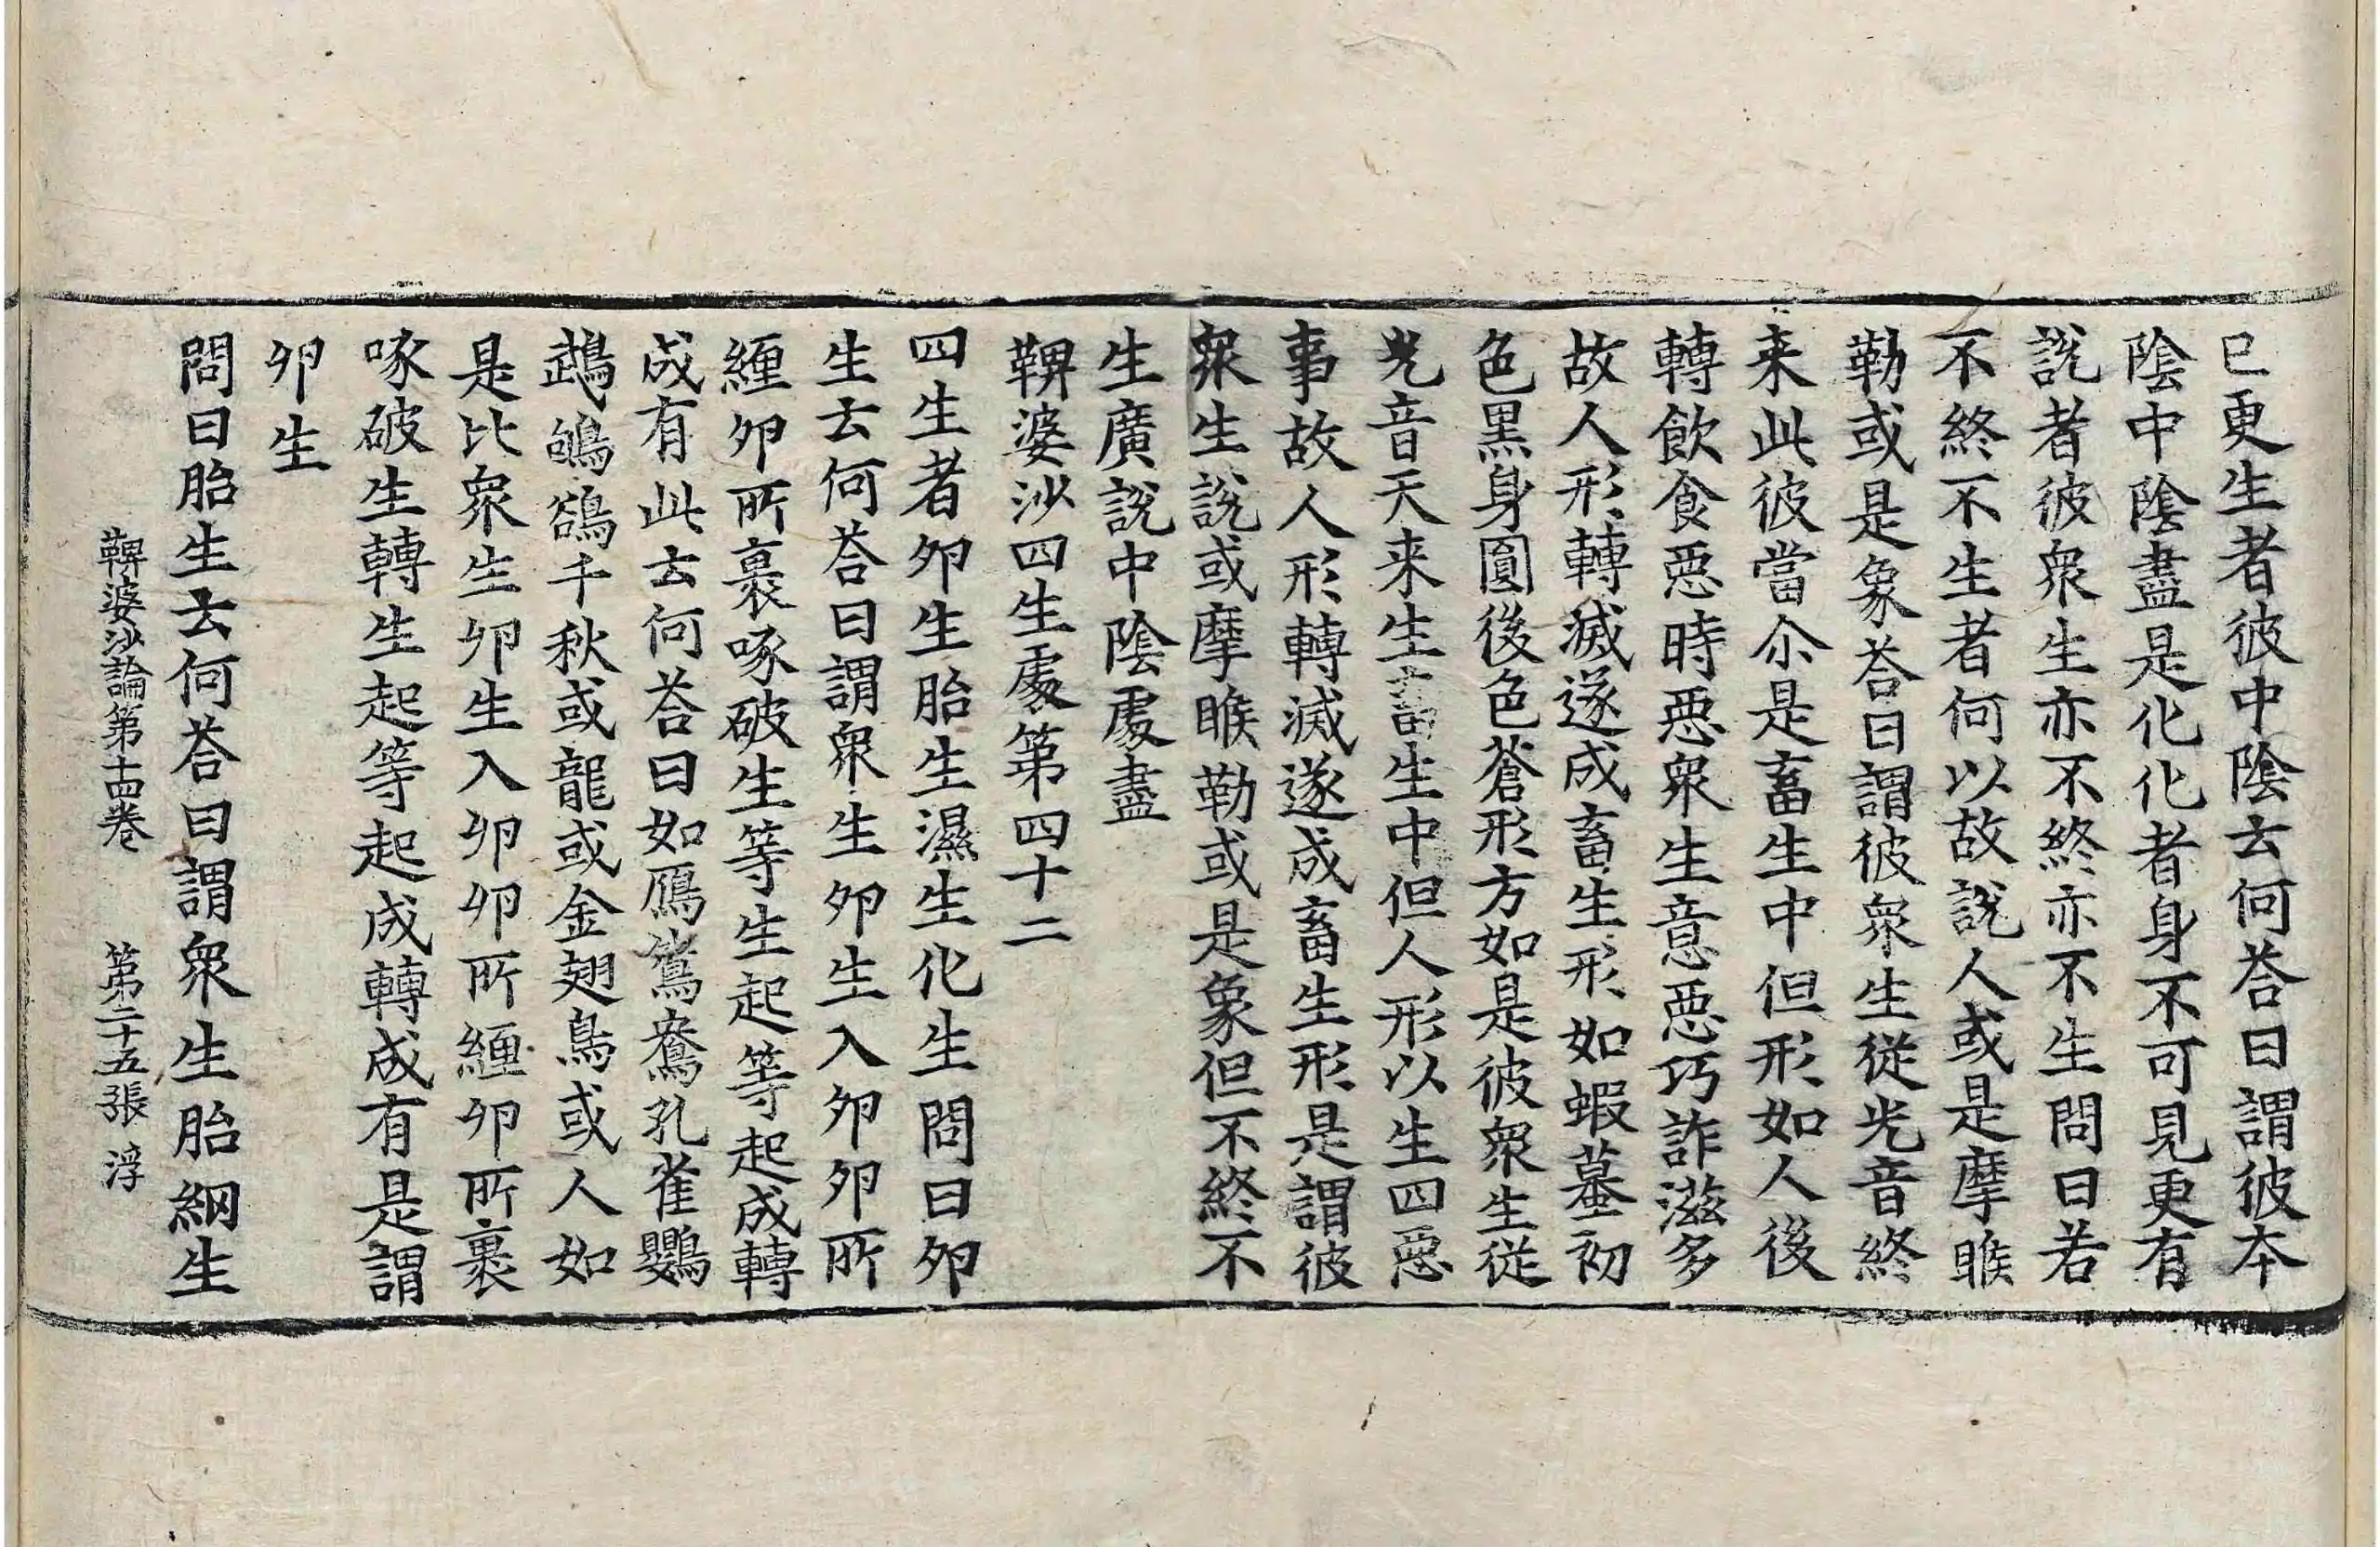 已更生者彼中陰云何荅曰謂彼本
陰中陰盡是化化者身不可見更有
說者彼衆生亦不終亦不生問曰若
不終不生者何以故說人或是摩睺
勒或是象荅曰謂彼衆生從光音終
来此彼當尒是畜生中但形如人後
轉飲食惡時惡衆生意惡巧詐滋多
故人形轉滅遂成畜生形如蝦蟇初
色黑身圓後色蒼形方如是彼衆生從
光音天来生畜生中但人形以生四惡
事故人形轉滅遂成畜生形是謂彼
衆生說或摩睺勒或是象但不終不
生廣說中陰處盡
鞞婆沙四生處第四十二
四生者卵生胎生濕生化生問曰卵
生云何荅曰謂衆生卵生入卵卵所
纏卵所裹啄破生等生起等起成轉
成有此云何荅曰如鴈鴛鴦孔雀鸚
鵡鴝鵒千秋或龍或金翅鳥或人如
是比衆生卵生入卵卵所纏卵所裹
啄破生轉生起等起成轉成有是謂
卵生
問曰胎生云何荅曰謂衆生胎網生
鞞婆沙論第十四卷　第二十五張　浮